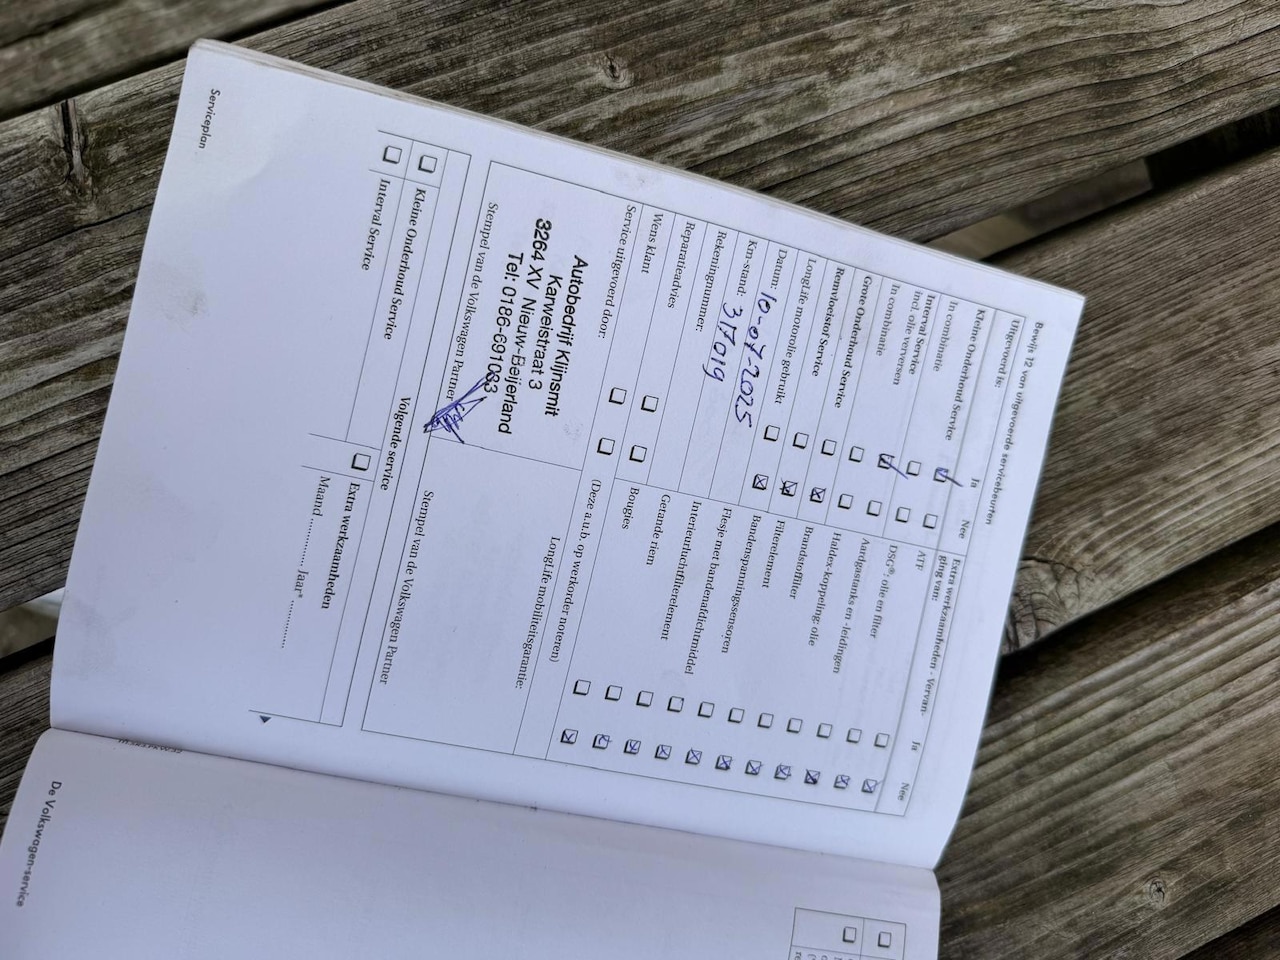 Bewijs 12 van uitgevoerde servicebeurten
Uitgevoerd is: Ja Nee
Kleine Onderhoud Service
In combinatie
Interval Service
incl. olie verversen
In combinatie
Grote Onderhoud Service
Remvloeistof Service
LongLife motorolie gebruikt
Datum: 10-07-2025
Km-stand: 317019
Rekeningnummer:
Reparatieadvies
Wens klant
Service uitgevoerd door:
Extra werkzaamheden - Vervan-
ging van: Ja Nee
ATF
DSG®: olie en filter
Aardgastanks en -leidingen
Haldex-koppeling: olie
Brandstoffilter
Filterelement
Bandenspanningssensoren
Flesje met bandenafdichtmiddel
Interieurluchtfilterelement
Getande riem
Bougies
(Deze a.u.b. op werkorder noteren)
LongLife mobiliteitsgarantie:
Autobedrijf Klijnsmit
Karweistraat 3
3264 XV Nieuw-Beijerland
Tel: 0186-691083
Stempel van de Volkswagen Partner
Stempel van de Volkswagen Partner
Volgende service
Kleine Onderhoud Service
Interval Service
Extra werkzaamheden
Maand ............... Jaar* ...............
Serviceplan
De Volkswagen-service